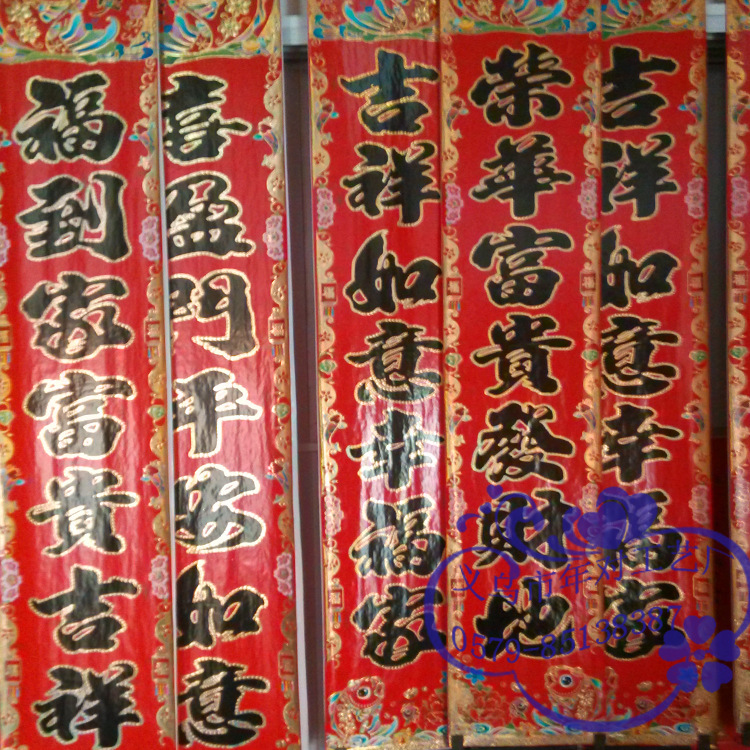 福到家富貴吉祥
喜盈門平安如意
吉祥如意幸福家
榮華富貴發財地
吉祥如意幸福家
义乌市年对工艺厂
0579-85138387